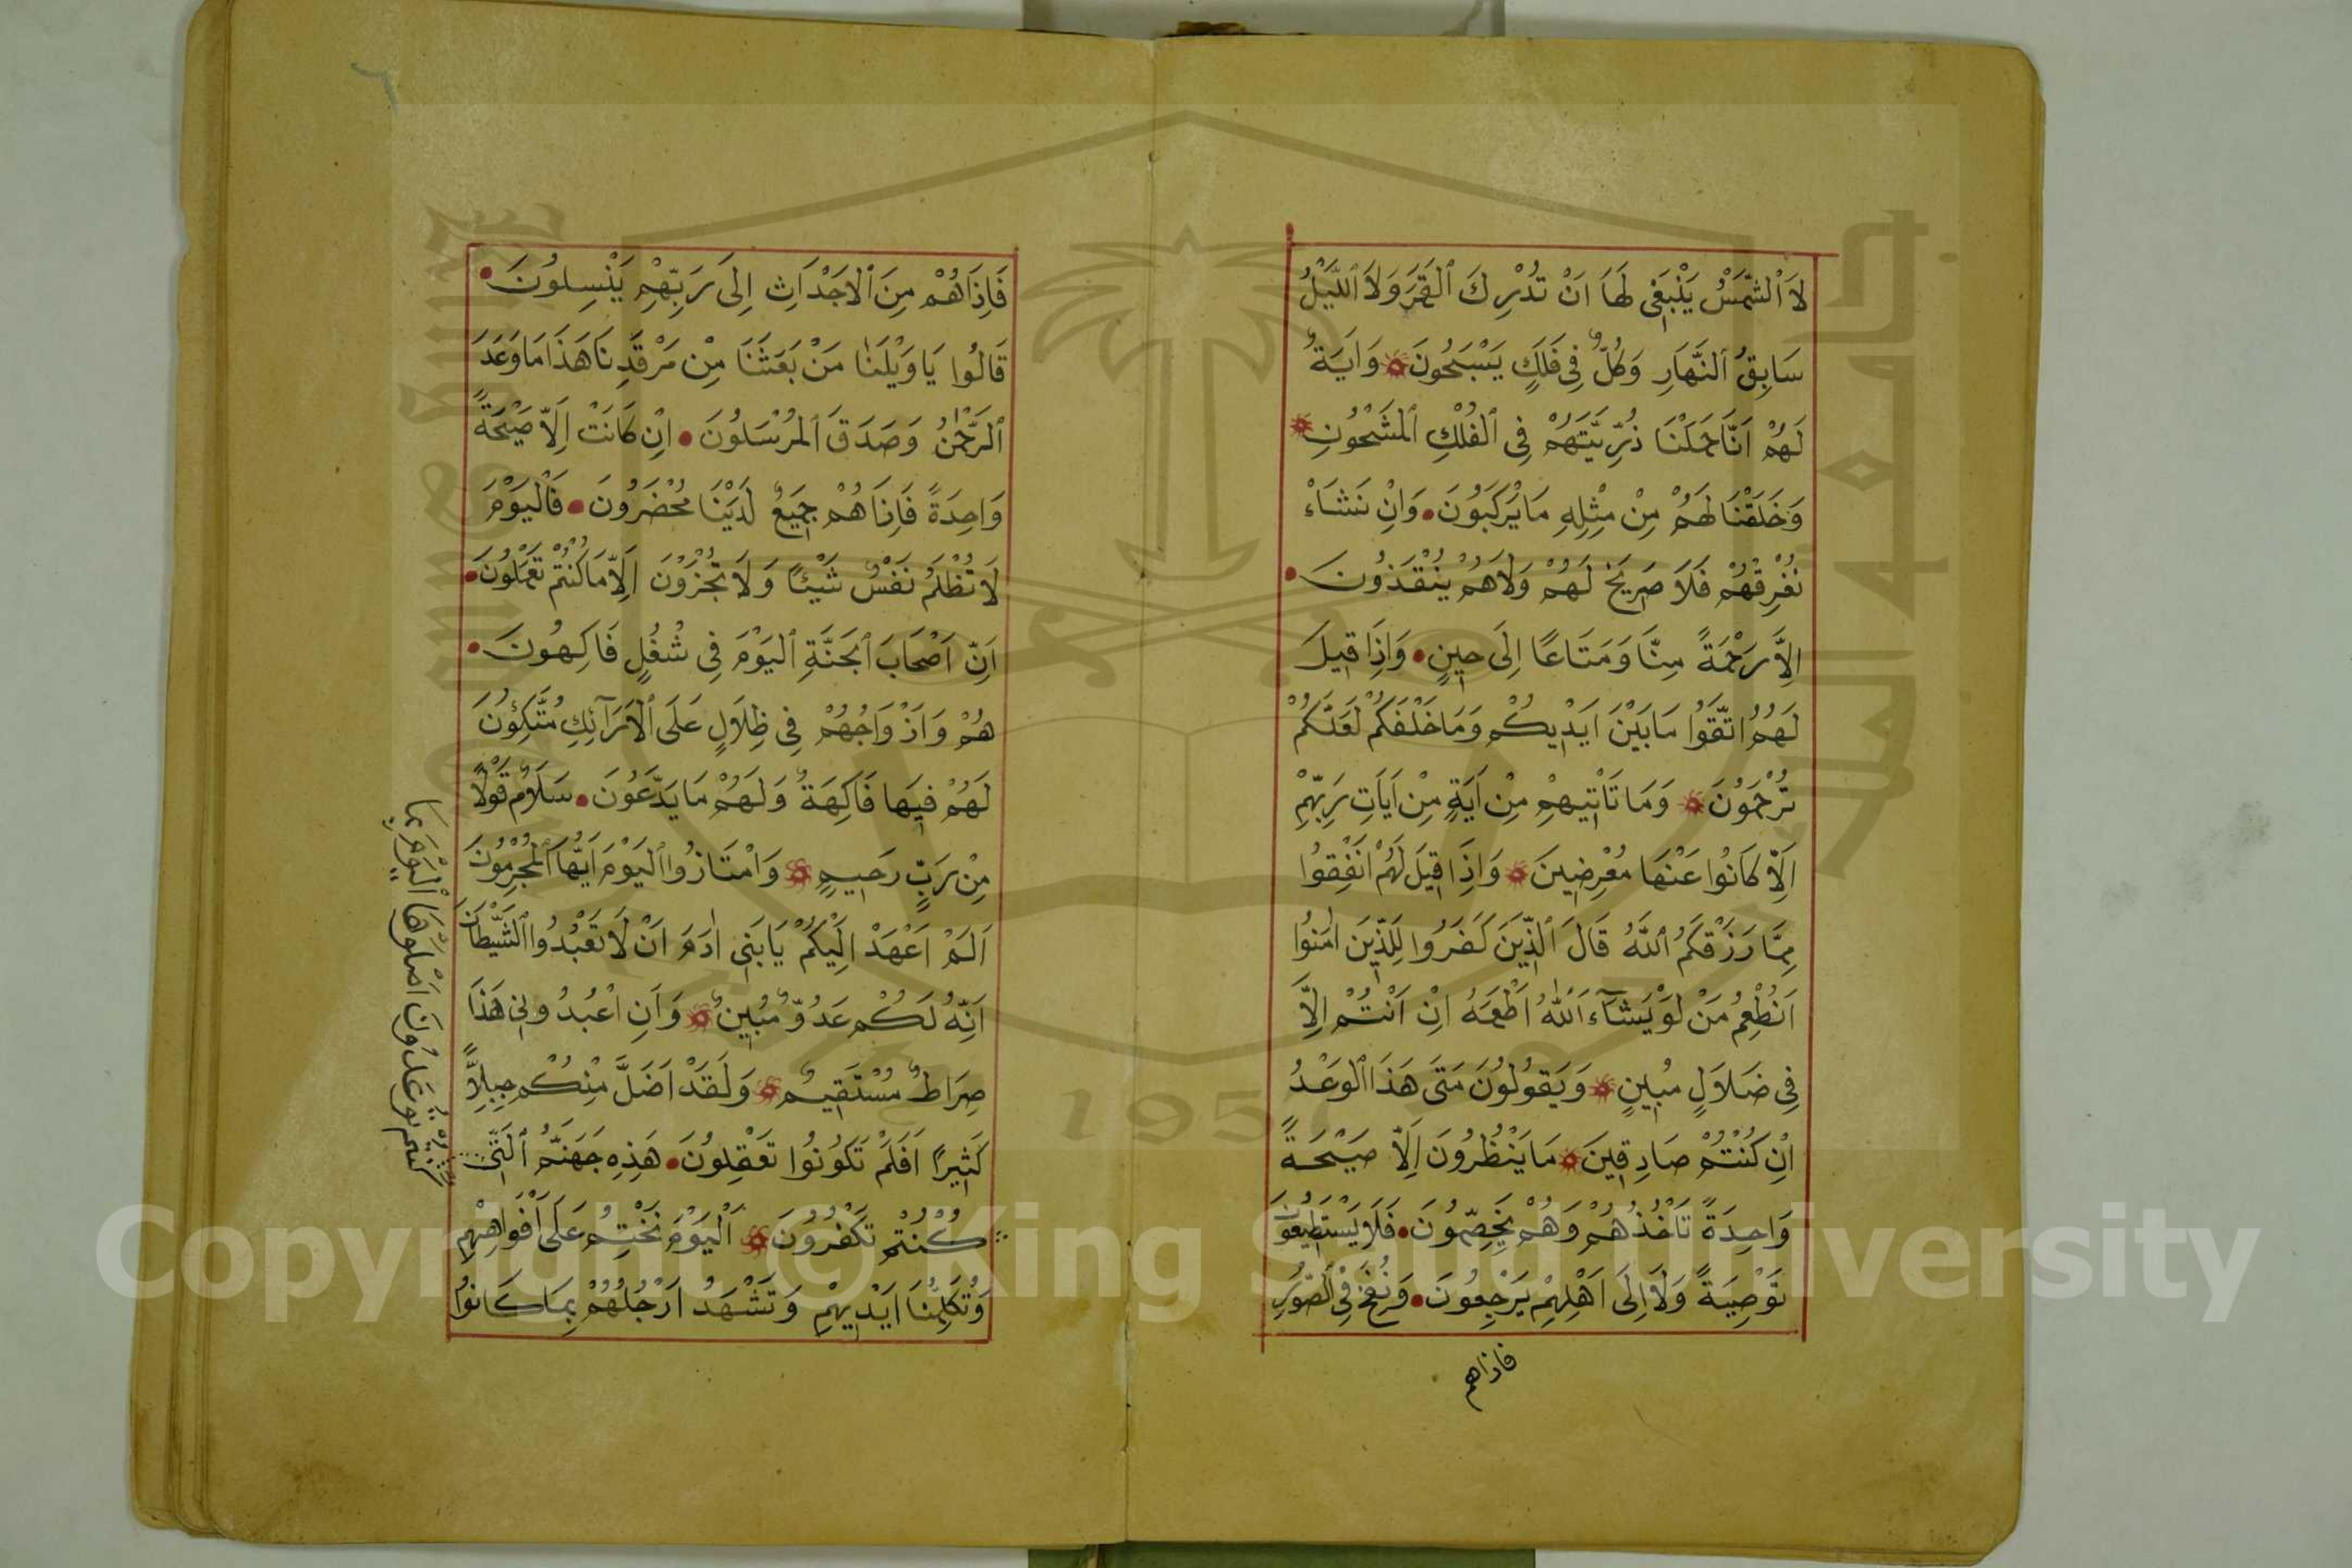 لَا ٱلشَّمْسُ يَنْبَغِى لَهَا اَنْ تُدْرِكَ ٱلْقَمَرَ وَلَا ٱللَّيْلُ
سَابِقُ ٱلنَّهَارِ وَكُلٌّ فِى فَلَكٍ يَسْبَحُونَ وَاٰيَةٌ
لَهُمْ اَنَّا حَمَلْنَا ذُرِّيَّتَهُمْ فِى ٱلْفُلْكِ ٱلْمَشْحُونِ
وَخَلَقْنَا لَهُمْ مِنْ مِثْلِهِ مَا يَرْكَبُونَ وَاِنْ نَشَاءْ
نُغْرِقْهُمْ فَلَا صَرِيخَ لَهُمْ وَلَا هُمْ يُنْقَذُونَ
اِلَّا رَحْمَةً مِنَّا وَمَتَاعًا اِلَى حِينٍ وَاِذَا قِيلَ
لَهُمُ اتَّقُوا مَا بَيْنَ اَيْدِيكُمْ وَمَا خَلْفَكُمْ لَعَلَّكُمْ
تُرْحَمُونَ وَمَا تَاْتِيهِمْ مِنْ اَيَةٍ مِنْ اَيَاتِ رَبِّهِمْ
اِلَّا كَانُوا عَنْهَا مُعْرِضِينَ وَاِذَا قِيلَ لَهُمْ اَنْفِقُوا
مِمَّا رَزَقَكُمُ ٱللَّهُ قَالَ ٱلَّذِينَ كَفَرُوا لِلَّذِينَ اٰمَنُوا
اَنُطْعِمُ مَنْ لَوْ يَشَآءُ ٱللَّهُ اَطْعَمَهُ اِنْ اَنْتُمْ اِلَّا
فِى ضَلَالٍ مُبِينٍ وَيَقُولُونَ مَتَى هَذَا ٱلْوَعْدُ
اِنْ كُنْتُمْ صَادِقِينَ مَا يَنْظُرُونَ اِلَّا صَيْحَةً
وَاحِدَةً تَاْخُذُهُمْ وَهُمْ يَخِصِّمُونَ فَلَا يَسْتَطِيعُونَ
تَوْصِيَةً وَلَا اِلَى اَهْلِهِمْ يَرْجِعُونَ وَنُفِخَ فِى ٱلصُّورِ
فاذاهم
فَاِذَا هُمْ مِنَ ٱلْاَجْدَاثِ اِلَى رَبِّهِمْ يَنْسِلُونَ
قَالُوا يَا وَيْلَنَا مَنْ بَعَثَنَا مِنْ مَرْقَدِنَا هَذَا مَا وَعَدَ
ٱلرَّحْمٰنُ وَصَدَقَ ٱلْمُرْسَلُونَ اِنْ كَانَتْ اِلَّا صَيْحَةً
وَاحِدَةً فَاِذَا هُمْ جَمِيعٌ لَدَيْنَا مُحْضَرُونَ فَالْيَوْمَ
لَا تُظْلَمُ نَفْسٌ شَيْئًا وَلَا تُجْزَوْنَ اِلَّا مَا كُنْتُمْ تَعْمَلُونَ
اِنَّ اَصْحَابَ ٱلْجَنَّةِ ٱلْيَوْمَ فِى شُغُلٍ فَاكِهُونَ
هُمْ وَاَزْوَاجُهُمْ فِى ظِلَالٍ عَلَى ٱلْاَرَآئِكِ مُتَّكِؤُنَ
لَهُمْ فِيهَا فَاكِهَةٌ وَلَهُمْ مَا يَدَّعُونَ سَلَامٌ قَوْلًا
مِنْ رَبٍّ رَحِيمٍ وَامْتَازُوا ٱلْيَوْمَ اَيُّهَا ٱلْمُجْرِمُونَ
اَلَمْ اَعْهَدْ اِلَيْكُمْ يَا بَنِى اٰدَمَ اَنْ لَا تَعْبُدُوا ٱلشَّيْطَانَ
اِنَّهُ لَكُمْ عَدُوٌّ مُبِينٌ وَاَنِ اعْبُدُونِى هَذَا
صِرَاطٌ مُسْتَقِيمٌ وَلَقَدْ اَضَلَّ مِنْكُمْ جِبِلًّا
كَثِيرًا اَفَلَمْ تَكُونُوا تَعْقِلُونَ هَذِهِ جَهَنَّمُ ٱلَّتِى
كُنْتُمْ تَكْفُرُونَ اَلْيَوْمَ نَخْتِمُ عَلَى اَفْوَاهِهِمْ
وَتُكَلِّمُنَا اَيْدِيهِمْ وَتَشْهَدُ اَرْجُلُهُمْ بِمَا كَانُوا
كُنْتُمْ تُوعَدُونَ اصْلَوْهَا ٱلْيَوْمَ بِمَا
Copyright © King Saud University
1957